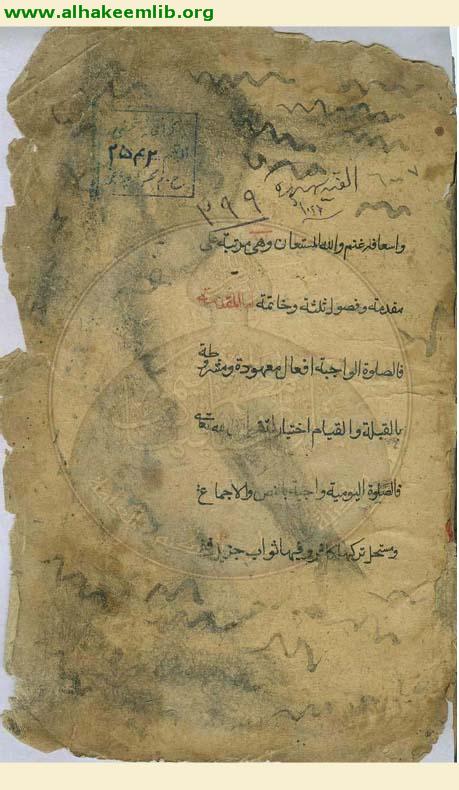 www.alhakeemlib.org
٢٥٤٢
الفية شهيد ره
٣٩٩
واسعافه غنم والله المستعان وهى مرتبة على
مقدمة وفصول ثلثة وخاتمة اما المقدمة
فالصلوة الواجبة افعال معهودة ومشروطة
بالقبلة والقيام اختيارا تقربا الى الله تعالى
فالصلوة اليومية واجبة بالنص والاجماع
ومستحل تركها كافر وفيها ثواب جزيل